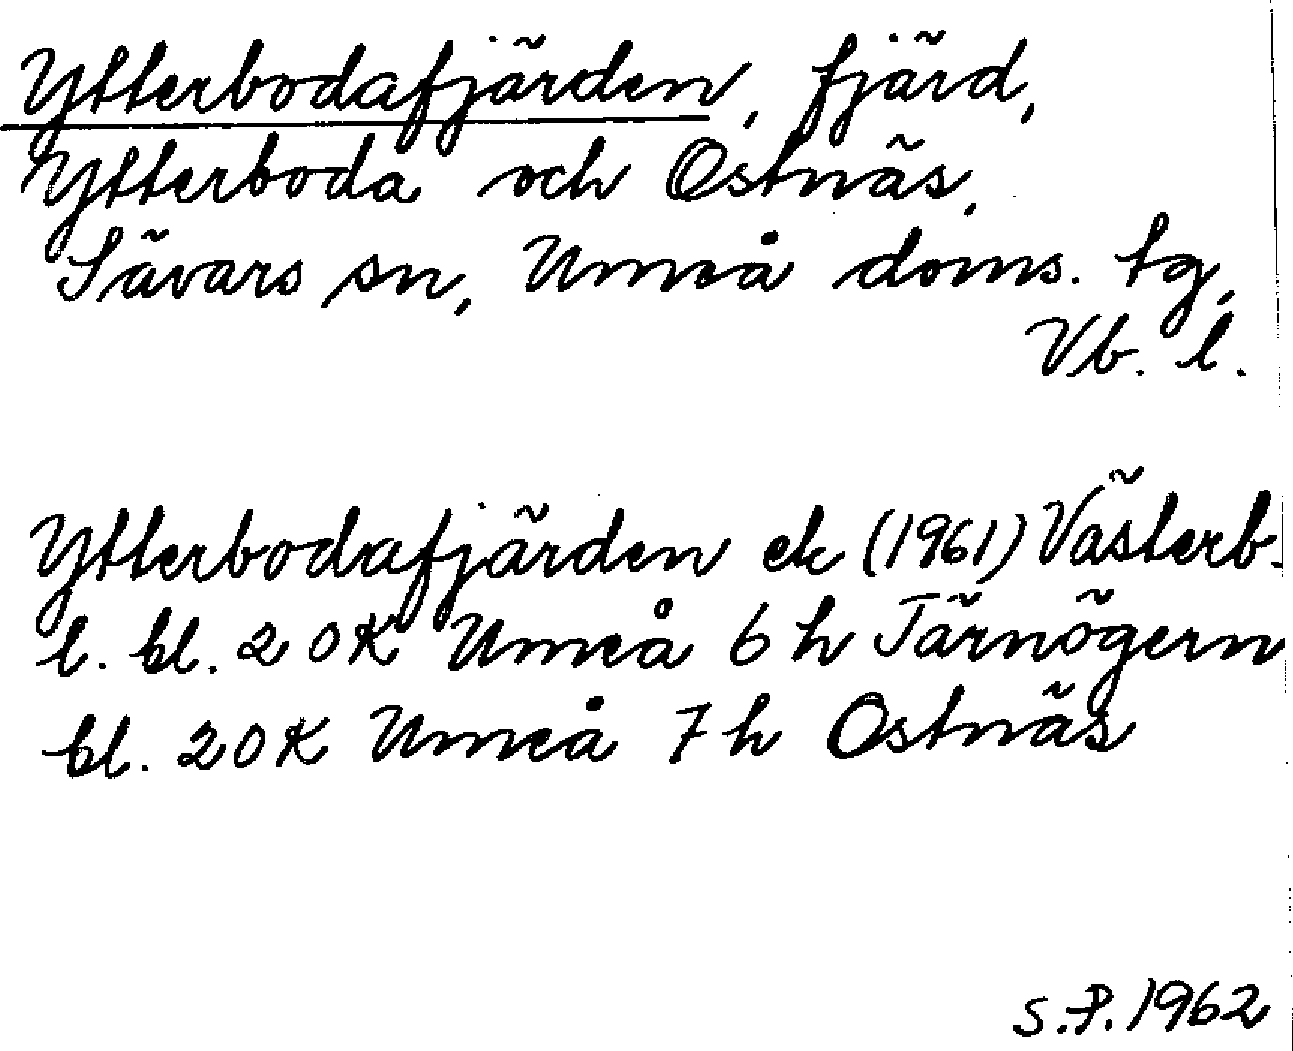 Ytterbodafjärden, fjärd,
Ytterboda och Ostnäs,
Sävars sn, Umeå doms. tg,
Vb. l.
Ytterbodafjärden ek (1961) Västerb.
l. bl. 20K Umeå 6h Tärnögern
bl. 20K Umeå 7h Ostnäs
S.P. 1962